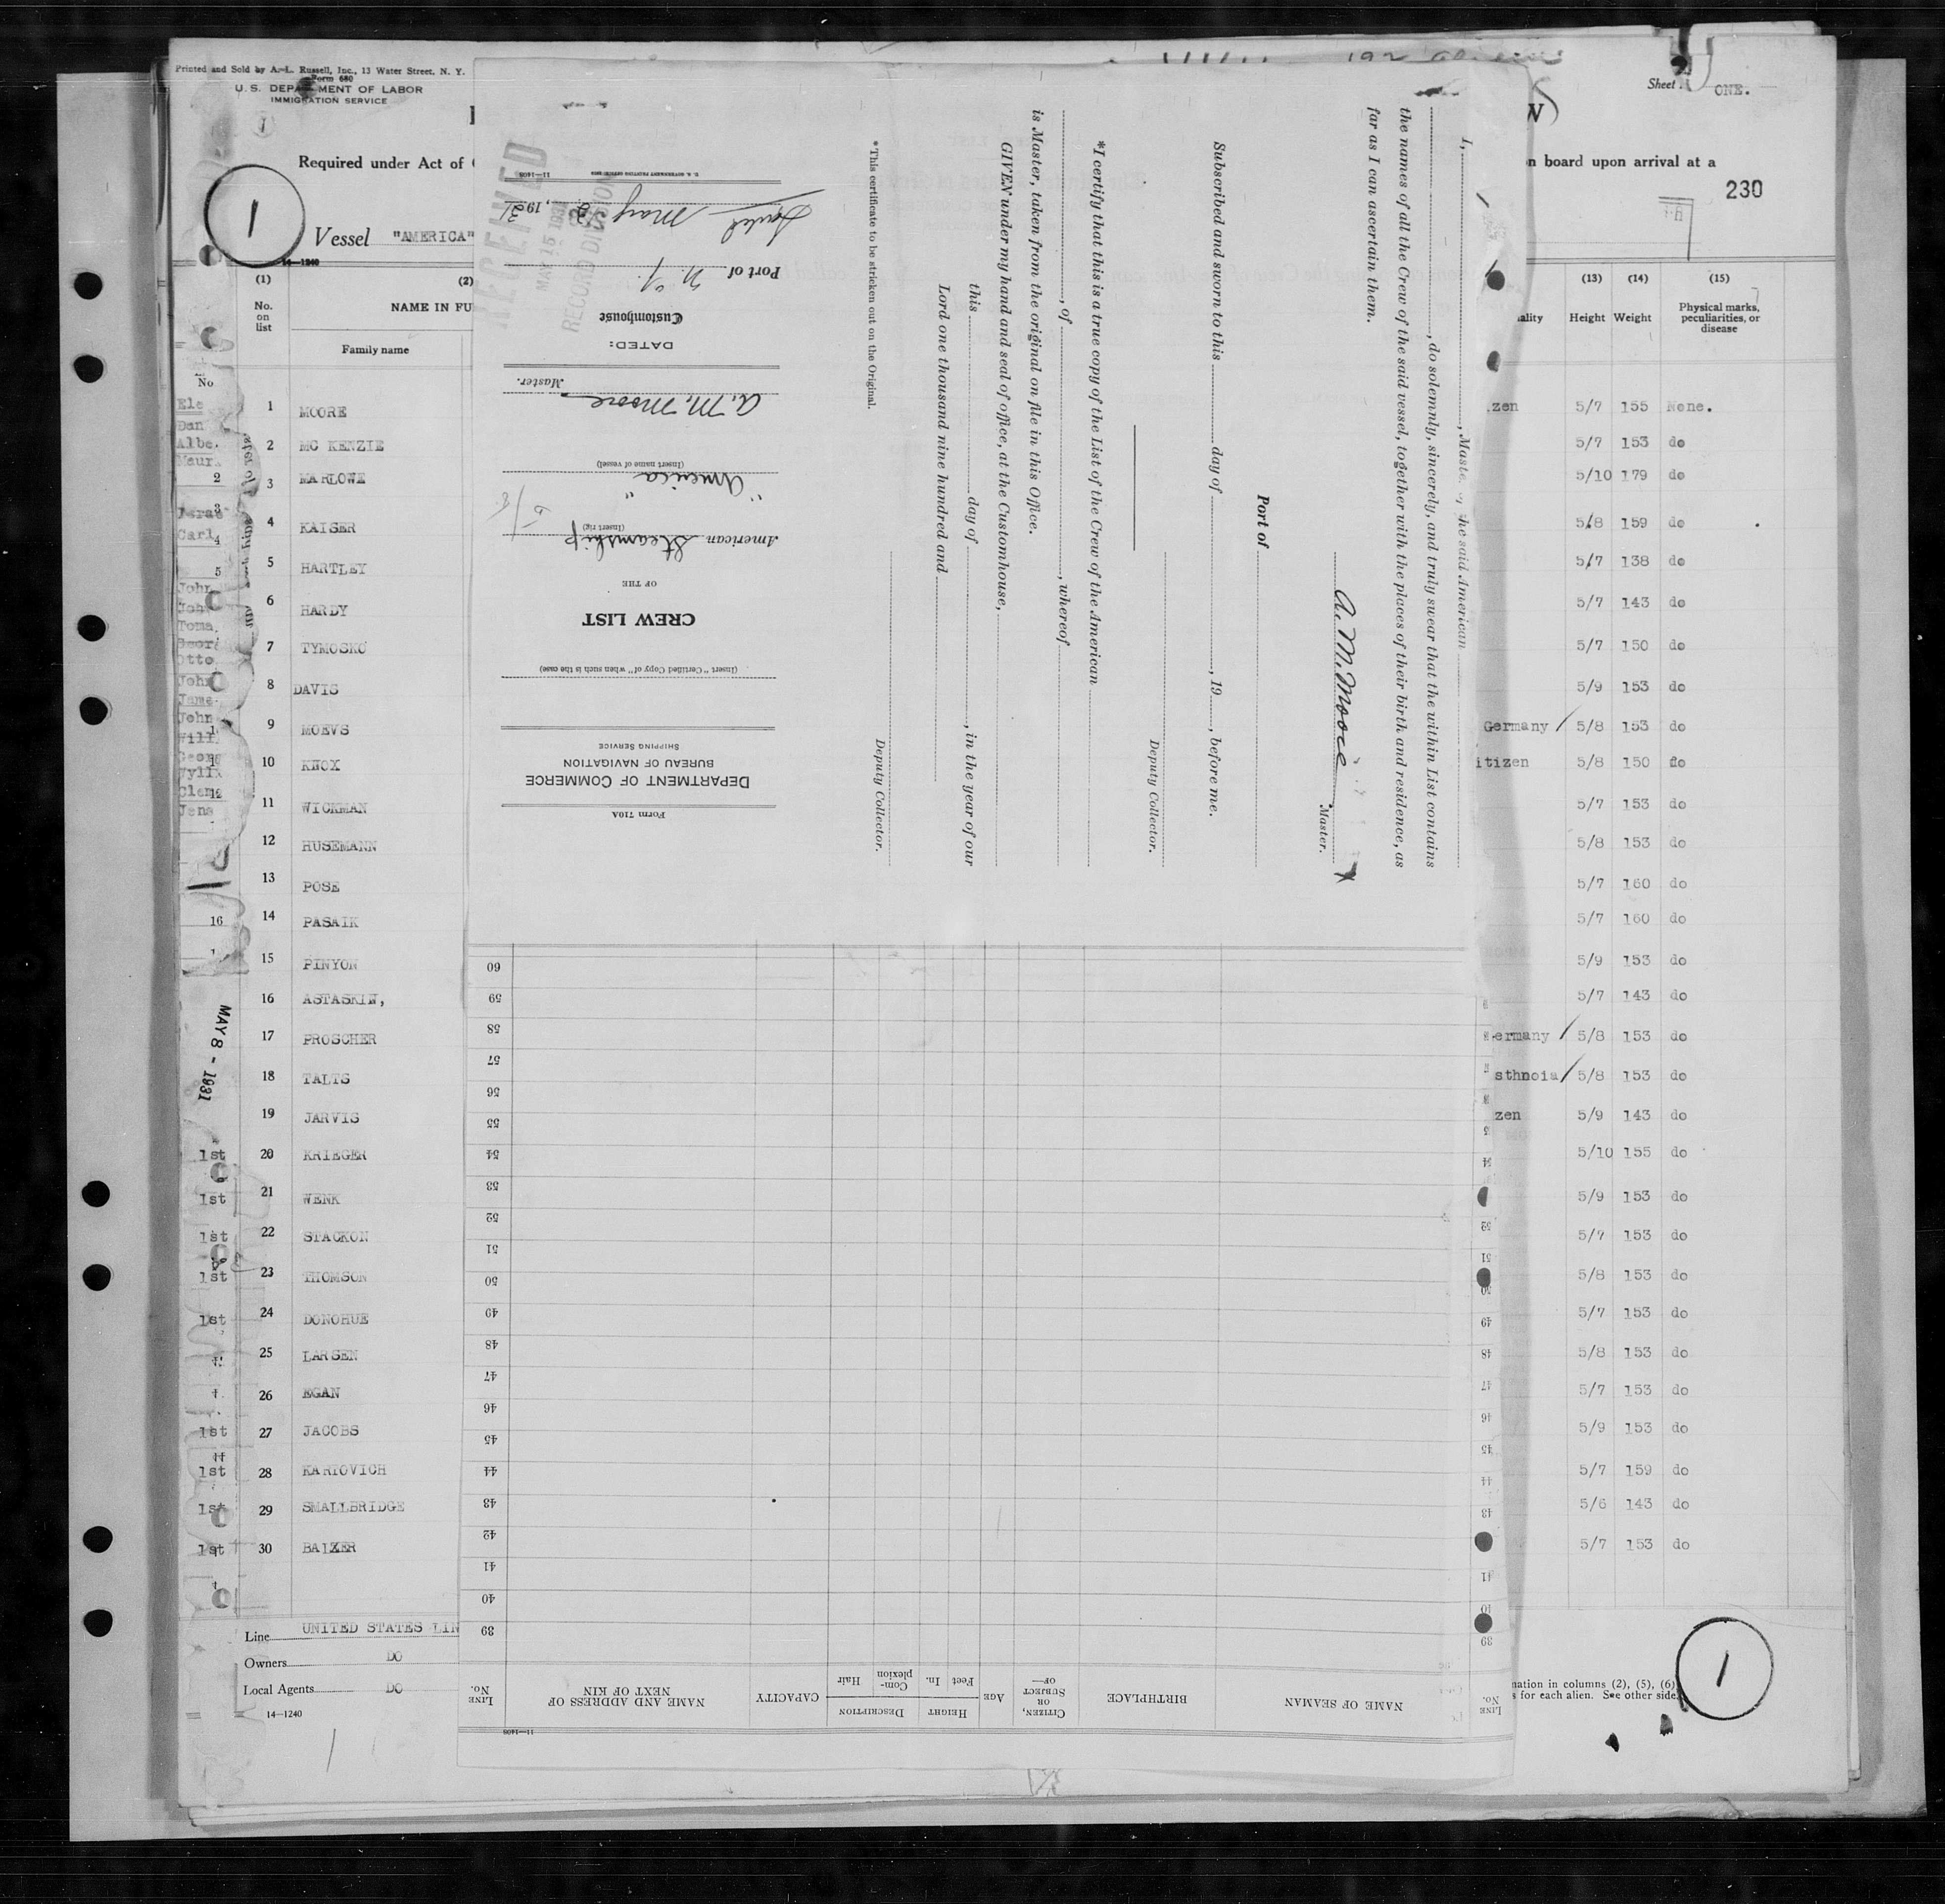 Printed and Sold by A. L. Russell, Inc., 13 Water Street, N. Y.
Form 680
U.S. DEPARTMENT OF LABOR
IMMIGRATION SERVICE
Sheet ONE.
Required under Act of
n board upon arrival at a
230
1
Vessel "AMERICA"
14—1240
(1) (2) (13) (14) (15)
No. on list
NAME IN FU
Family name
ality Height Weight Physical marks, peculiarities, or disease
1 MOORE zen 5/7 155 None.
2 MC KENZIE 5/7 153 do
3 MARLOWE 5/10 179 do
4 KAISER 5/8 159 do
5 HARTLEY 5/7 138 do
6 HARDY 5/7 143 do
7 TYMOSKO 5/7 150 do
8 DAVIS 5/9 153 do
9 MOEVS Germany 5/8 153 do
10 KNOX itizen 5/8 150 do
11 WICKMAN 5/7 153 do
12 HUSEMANN 5/8 153 do
13 POSE 5/7 160 do
14 PASAIK 5/7 160 do
15 PINYON 5/9 153 do
16 ASTASKIN, 5/7 143 do
17 PROSCHER ermany 5/8 153 do
18 TALTS sthnoia 5/8 153 do
19 JARVIS zen 5/9 143 do
1st 20 KRIEGER 5/10 155 do
1st 21 WENK 5/9 153 do
1st 22 STACKON 5/7 153 do
1st 23 THOMSON 5/8 153 do
1st 24 DONOHUE 5/7 153 do
25 LARSEN 5/8 153 do
26 EGAN 5/7 153 do
1st 27 JACOBS 5/9 153 do
1st 28 KARIOVICH 5/7 159 do
1st 29 SMALLBRIDGE 5/6 143 do
1st 30 BAIZER 5/7 153 do
MAY 8 - 1931
Line UNITED STATES LIN
Owners DO
Local Agents DO
14—1240
mation in columns (2), (5), (6)
s for each alien. See other side.
1
Form 710A
DEPARTMENT OF COMMERCE
BUREAU OF NAVIGATION
SHIPPING SERVICE
(Insert "Certified Copy of" when such is the case)
CREW LIST
OF THE
American Steamship
(Insert rig)
"America"
(Insert name of vessel)
A. M. Moore
Master.
DATED:
Customhouse
Port of N. Y.
May , 1931
U. S. GOVERNMENT PRINTING OFFICE
11—1408
RECEIVED
MAY 15 1931
RECORD DIVISION
I, , Master of the said American
, do solemnly, sincerely, and truly swear that the within List contains
the names of all the Crew of the said vessel, together with the places of their birth and residence, as
far as I can ascertain them.
A. M. Moore
Master.
Port of
Subscribed and sworn to this day of , 19 , before me.
Deputy Collector.
*I certify that this is a true copy of the List of the Crew of the American
, of , whereof
is Master, taken from the original on file in this Office.
GIVEN under my hand and seal of office, at the Customhouse,
this day of , in the year of our
Lord one thousand nine hundred and
Deputy Collector.
*This certificate to be stricken out on the Original.
LINE No. NAME OF SEAMAN BIRTHPLACE CITIZEN, OR SUBJECT OF— AGE HEIGHT Feet In. DESCRIPTION Complexion Hair CAPACITY NAME AND ADDRESS OF NEXT OF KIN LINE No.
11—1408
39
40
41
42
43
44
45
46
47
48
49
50
51
52
53
54
55
56
57
58
59
60